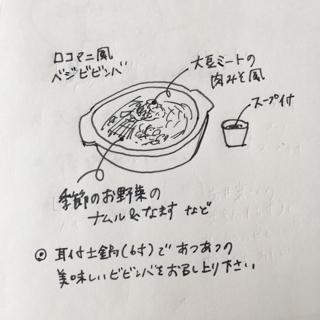 ロコマニ風
ベジビビンバ
大豆ミートの
肉みそ風
スープ付
季節のお野菜の
ナムル&なます など
◎ 耳付土鍋(6寸)で あつあつの
美味しいビビンバをお召し上り下さい